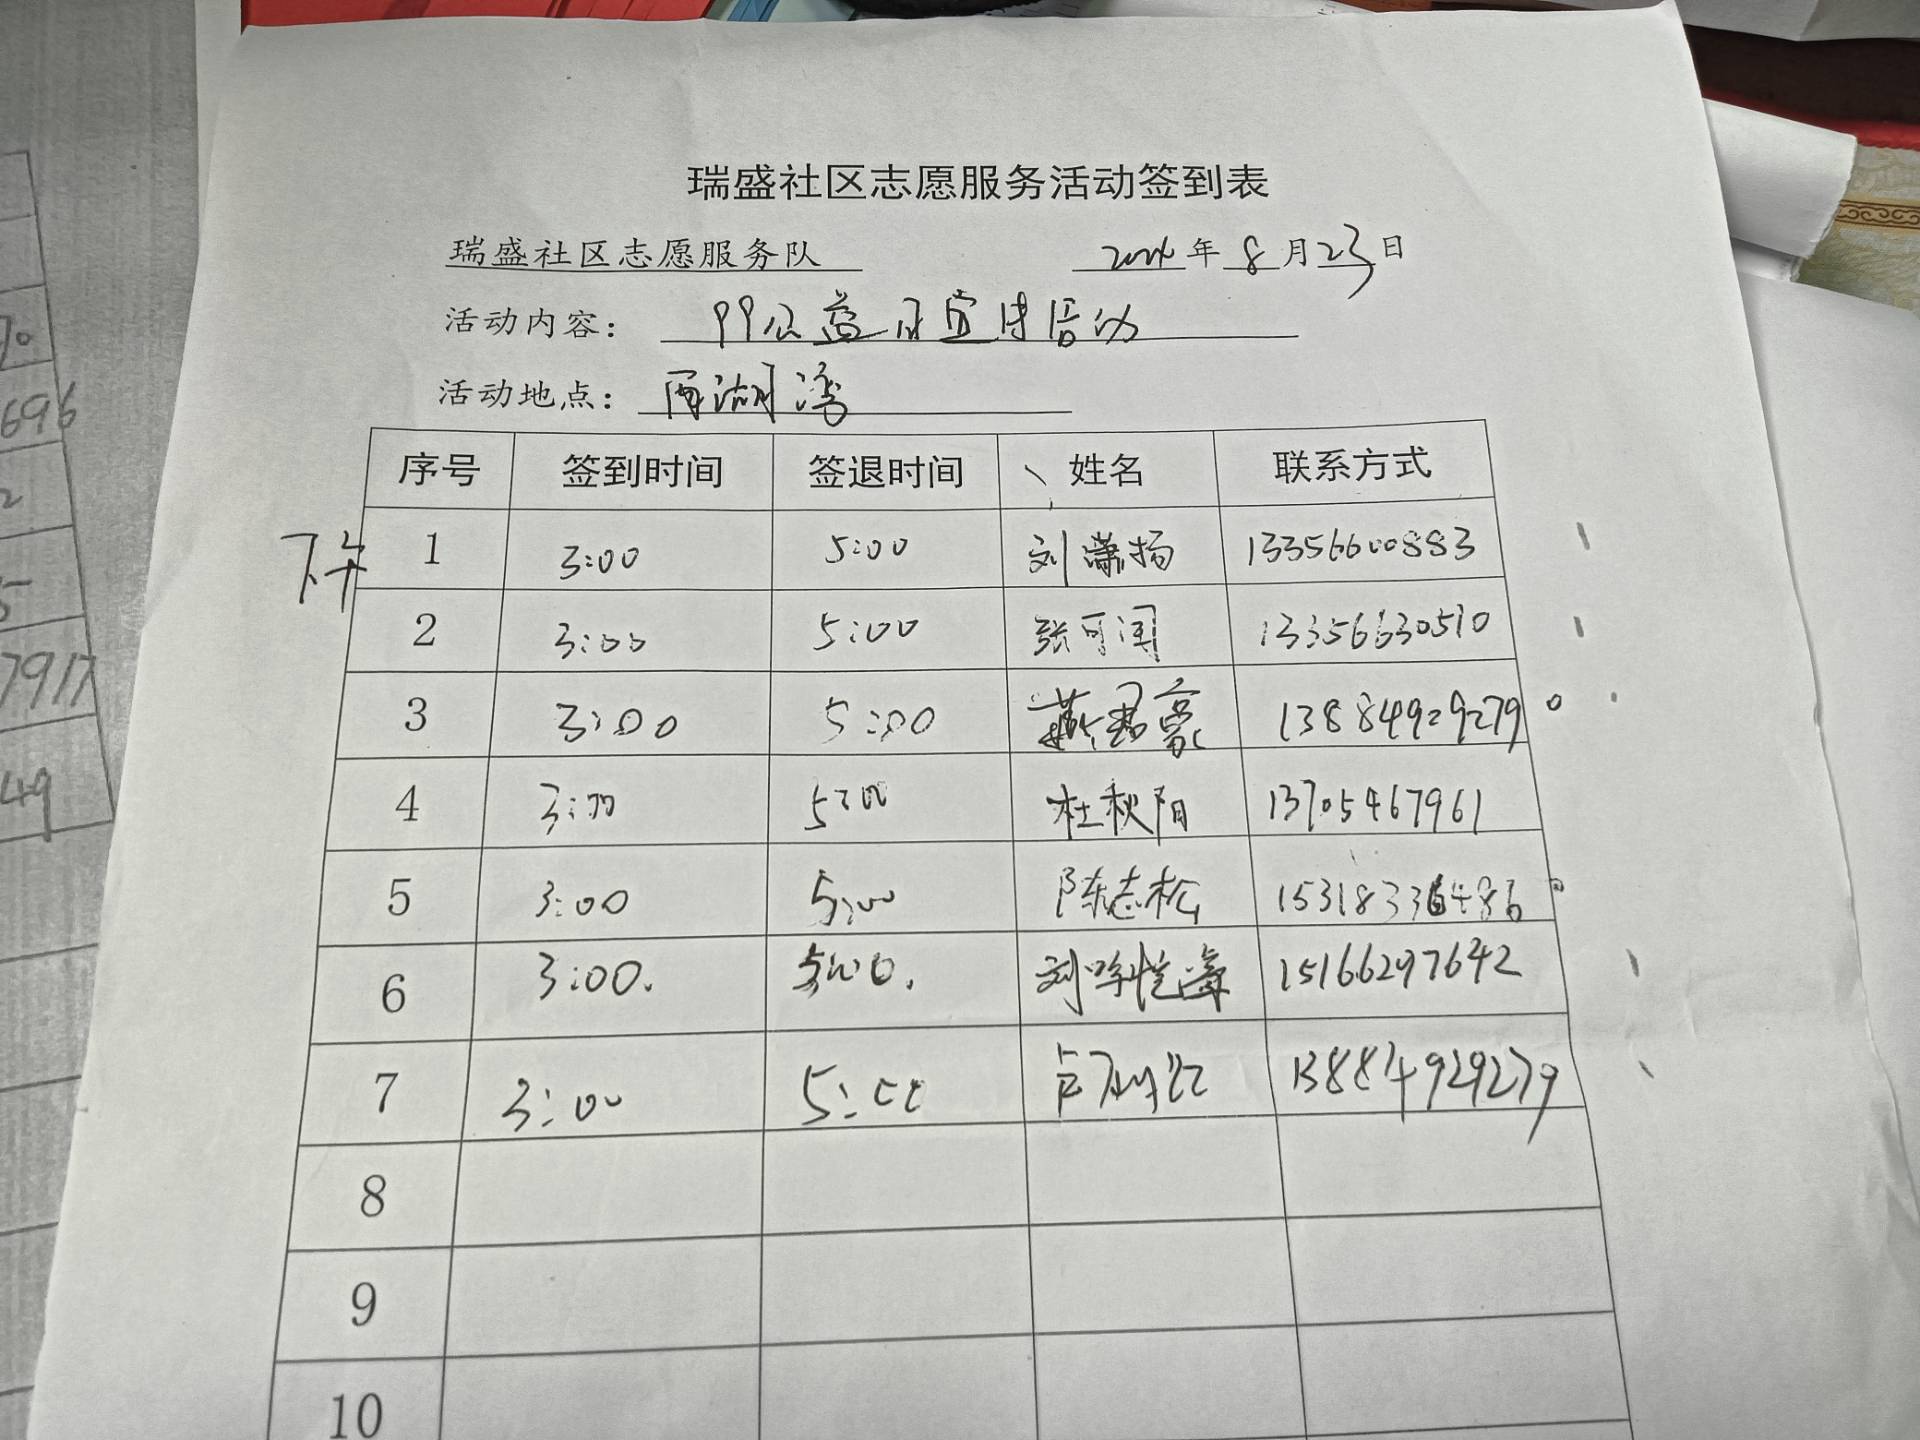 瑞盛社区志愿服务活动签到表
瑞盛社区志愿服务队 2024年8月23日
活动内容： 99公益日宣传活动
活动地点： 西湖湾
序号 签到时间 签退时间 姓名 联系方式
下午 1 3:00 5:00 刘潇扬 13356600883
2 3:00 5:00 张可闻 13356630510
3 3:00 5:00 13884929279
4 3:00 5:00 杜秋阳 13705467961
5 3:00 5:00 陈志松 15318336486
6 3:00. 5:00. 15166297642
7 3:00 5:00 13884929279
8
9
10
696
7917
49